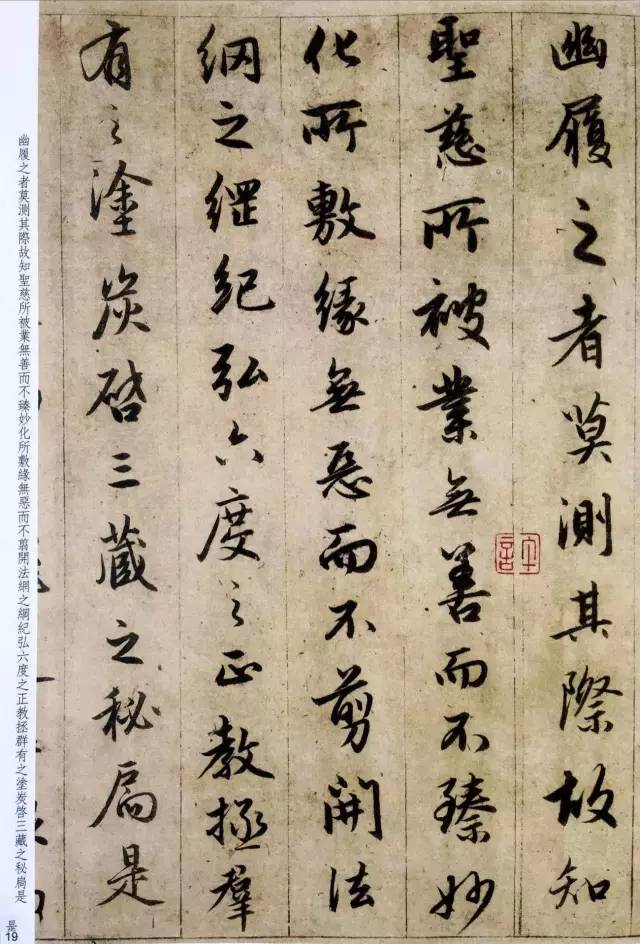 幽履之者莫測其際故知
聖慈所被業無善而不臻妙
化所敷緣無惡而不剪開法
網之綱紀弘六度之正教拯羣
有之塗炭啓三藏之秘扃是
幽履之者莫測其際故知聖慈所被業無善而不臻妙化所敷緣無惡而不翦開法網之綱紀弘六度之正教拯群有之塗炭啓三藏之秘扃是
是
19